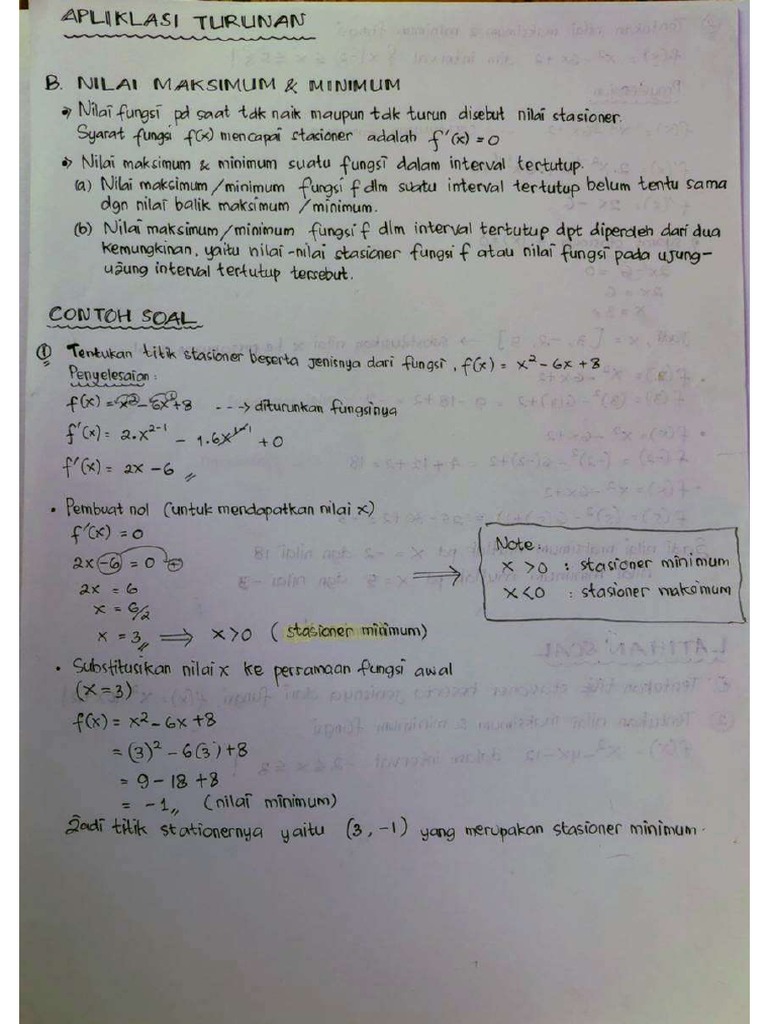 APLIKLASI TURUNAN
B. NILAI MAKSIMUM & MINIMUM
Nilai fungsi pd saat tdk naik maupun tdk turun disebut nilai stasioner.
Syarat fungsi f(x) mencapai stasioner adalah f'(x) = 0
Nilai maksimum & minimum suatu fungsi dalam interval tertutup.
(a) Nilai maksimum/minimum fungsi f dlm suatu interval tertutup belum tentu sama
dgn nilai balik maksimum/minimum.
(b) Nilai maksimum/minimum fungsi f dlm interval tertutup dpt diperoleh dari dua
kemungkinan, yaitu nilai-nilai stasioner fungsi f atau nilai fungsi pada ujung-
ujung interval tertutup tersebut.
CONTOH SOAL
① Tentukan titik stasioner beserta jenisnya dari fungsi, f(x) = x² - 6x + 8
Penyelesaian:
f(x) = x² - 6x + 8 ---> diturunkan fungsinya
f'(x) = 2.x²⁻¹ - 1.6x¹⁻¹ + 0
f'(x) = 2x - 6
• Pembuat nol (untuk mendapatkan nilai x)
f'(x) = 0
2x - 6 = 0
2x = 6
x = 6/2
x = 3 ⟹ x > 0 (stasioner minimum)
Note:
x > 0 : stasioner minimum
x < 0 : stasioner maksimum
• Substitusikan nilai x ke persamaan fungsi awal
(x = 3)
f(x) = x² - 6x + 8
= (3)² - 6(3) + 8
= 9 - 18 + 8
= -1 (nilai minimum)
Jadi titik stationernya yaitu (3, -1) yang merupakan stasioner minimum.